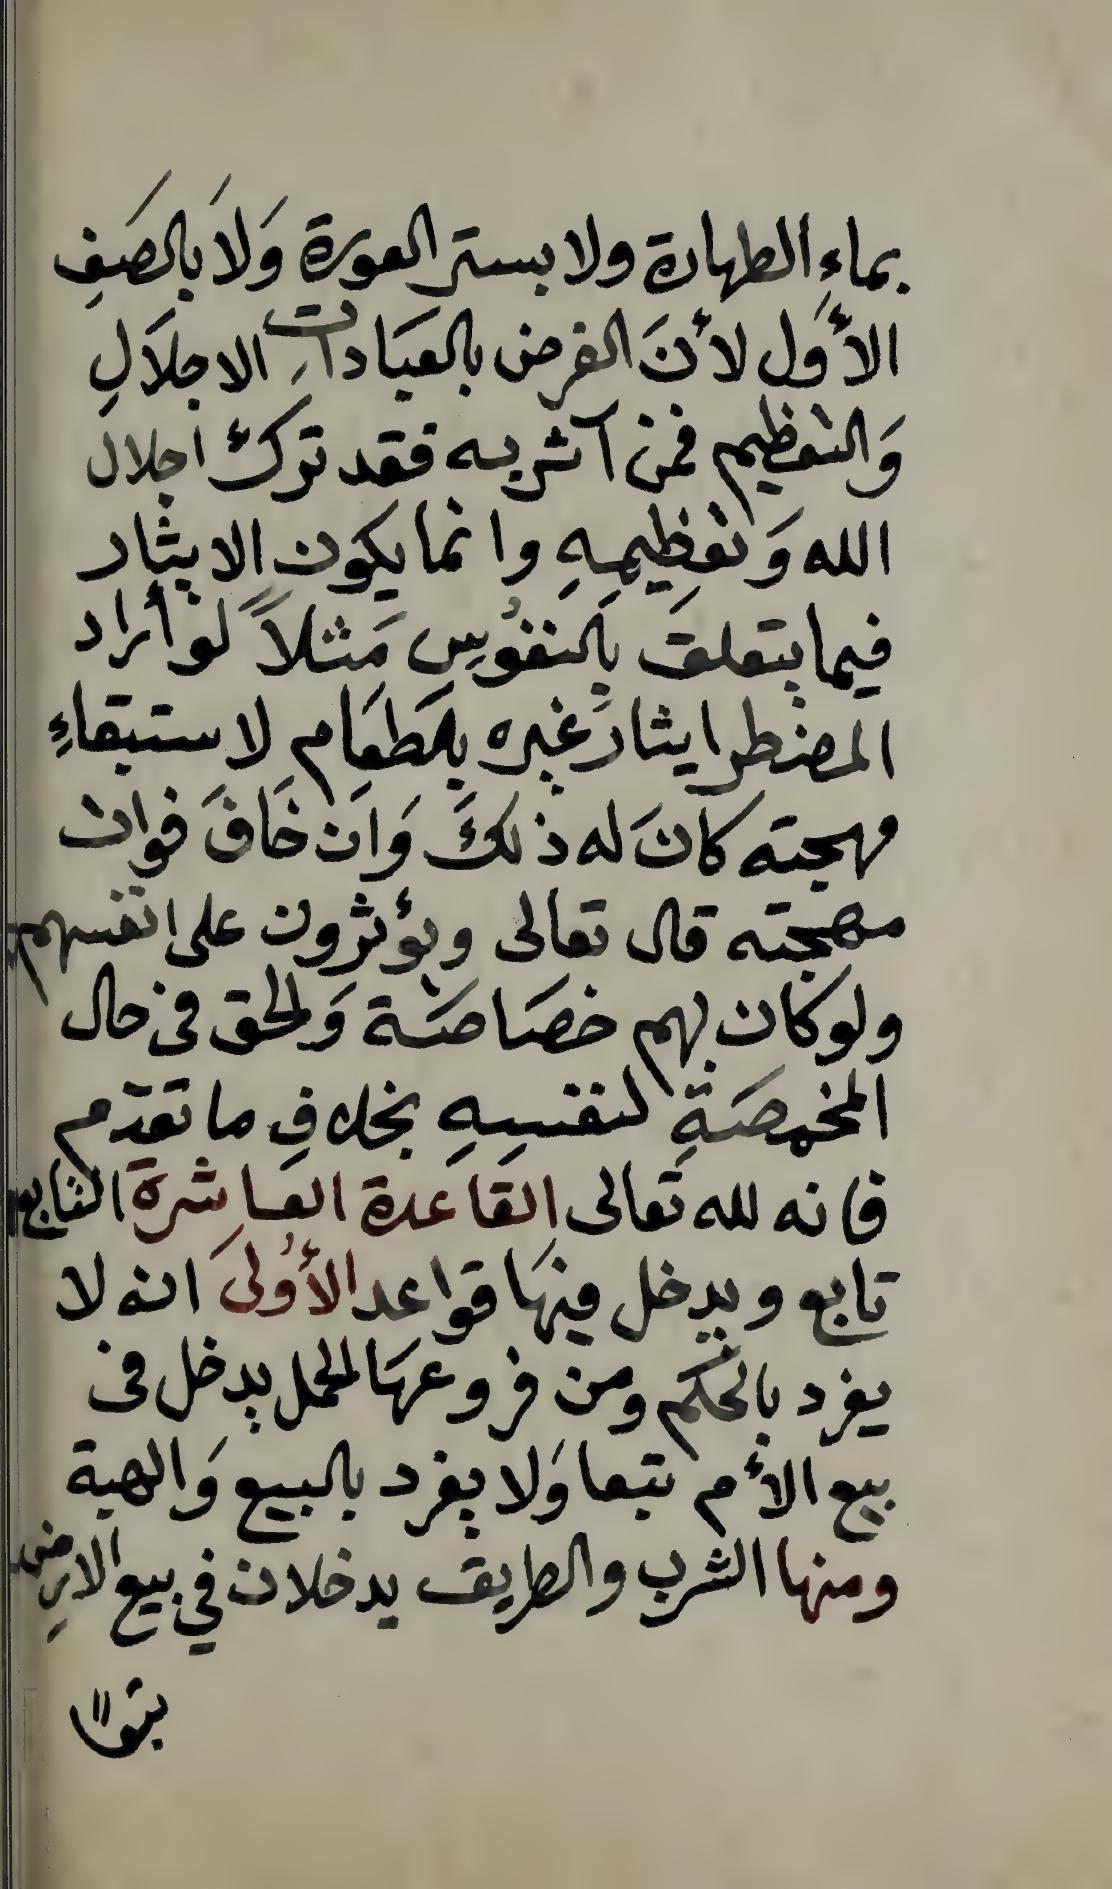 بماءِ الطهارة ولا بستر العورة وَلَا بالصَفِ
الأوَل لأنَ الغرض بالعبَاداتِ الاجلَالِ
وَالتعظيم فمن آثر به فقد ترك اجلال
الله وَتعظِيمِهِ وانما يكون الايثار
فيما يتعلق بالنفوُسِ مَثلاً لو أراد
المضطر ايثارَ غيره بالطعَام لاستبقاءِ
مهجته كانَ له ذلكَ وَان خَافَ فوات
مهجته قال تعالى ويؤثرون على انفسهم
ولو كان بهم خصَاصَة وَالحق في حال
المخمصَةِ لنفسِهِ بخلافِ ما تقدّم
فانه لله تعالى القاعدة العَاشرة التابع
تابع ويدخل فيهَا قواعد الأوُلىَ انه لا
يفرد بالحكم ومن فروعهَا الحمل يدخل في
بيع الأم تبعا وَلا يفرد بالبيع وَالهبة
ومنها الشرب والطريق يدخلان في بيع الارضِ
تبعاً